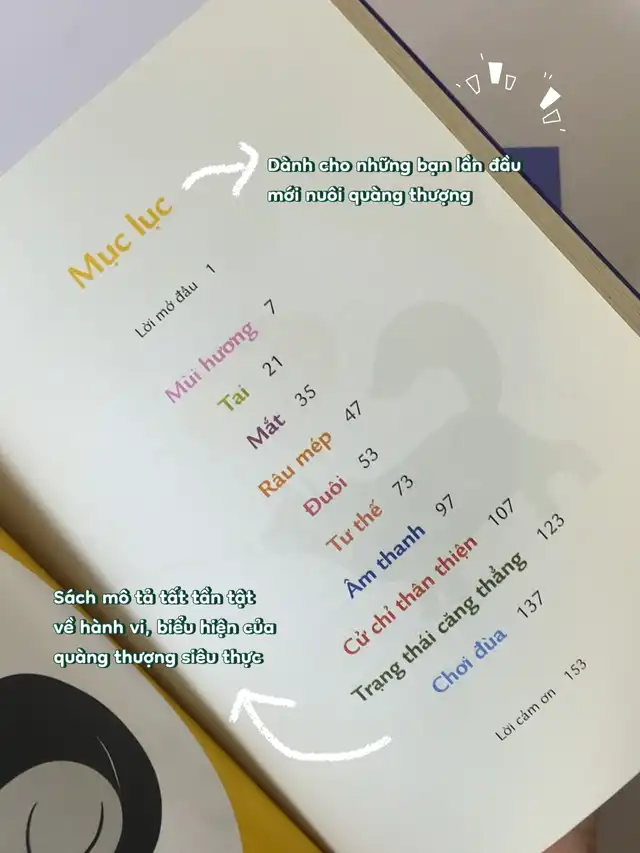 Dành cho những bạn lần đầu
mới nuôi quàng thượng
Mục lục
Lời mở đầu 1
Mùi hương 7
Tai 21
Mắt 35
Râu mép 47
Đuôi 53
Tư thế 73
Âm thanh 97
Cử chỉ thân thiện 107
Trạng thái căng thẳng 123
Chơi đùa 137
Lời cảm ơn 153
Sách mô tả tất tần tật
về hành vi, biểu hiện của
quàng thượng siêu thực